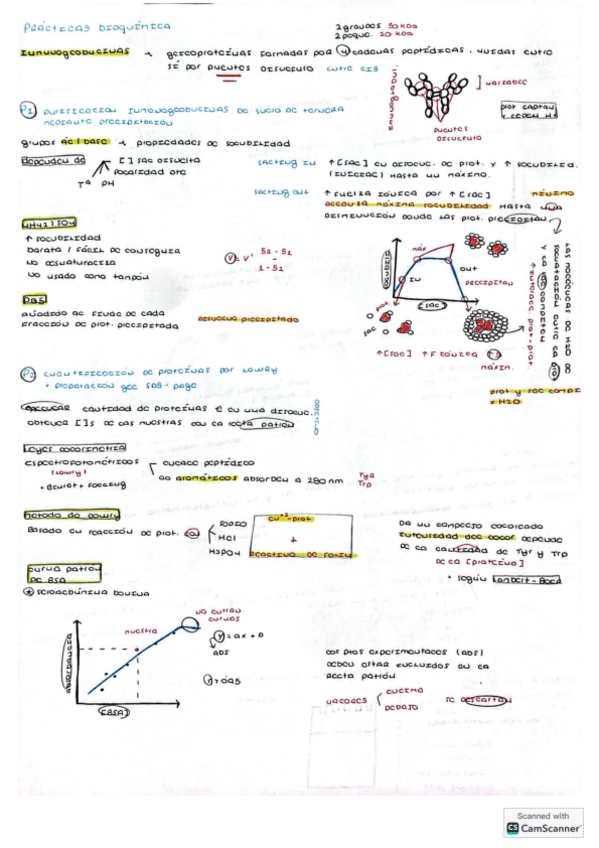 PRÁCTICAS BIOQUÍMICA
2 grandes 50 kDa
2 pequ. 20 kDa
INMUNOGLOBULINAS → glicoproteínas formadas por 4 cadenas peptídicas, unidas entre
sí por puentes disulfuro entre cis
variable
puentes
disulfuro
P1 purificación inmunoglobulinas de suero de ternera
mediante precipitación
grupos ác/base → propiedades de solubilidad
depende de
[ ] sal disuelta
polaridad dte
Tª pH
salting in ↑ [sal] en disoluc. de prot. y ↑ solubilid.
hasta un máximo.
salting out ↑ fuerza iónica por ↑ [sal]
máxima solubilidad hasta una
disminución donde las prot. precipitan
(NH4)2SO4
↑ solubilidad
barata / fácil de conseguir
no desnaturaliza
no usado como tampón
V = V' S2 - S1
1 - S2
máx
IN
OUT
precipitan
[sal]
prot
sal
PBS
añadido al final de cada
fracción de prot. precipitada
disuelve precipitado
↑[sal] ↑F. iónica
máxim.
prot y sal compi
x H2O
P2 cuantificación de proteínas por Lowry
+ preparación gel SDS-page
cantidad de proteínas e en una disoluc.
obtener [ ]s de las muestras con la recta patrón
objetivo
Leyes colorimetría
espectrofotométricos
(Lowry)
+ Biuret + Folin
enlace peptídico
aa aromáticos absorben a 280 nm
Tyr
Trp
Método de Lowry
Basado en reacción de prot. con
Cu+2-prot
+
reactivo de Folin
Da un complejo coloreado
intensidad del color depende
de la cantidad de Tyr y Trp
de la [proteína]
• según Lambert-Beer
curva patrón
de BSA
* seroalbúmina bovina
absorbancia
muestra
[BSA]
no entran
curvas
y = ax + b
ABS
los ptos experimentales (ABS)
deben estar incluidos en la
recta patrón
valores
encima
debajo
se descartan
Scanned with
CS CamScanner